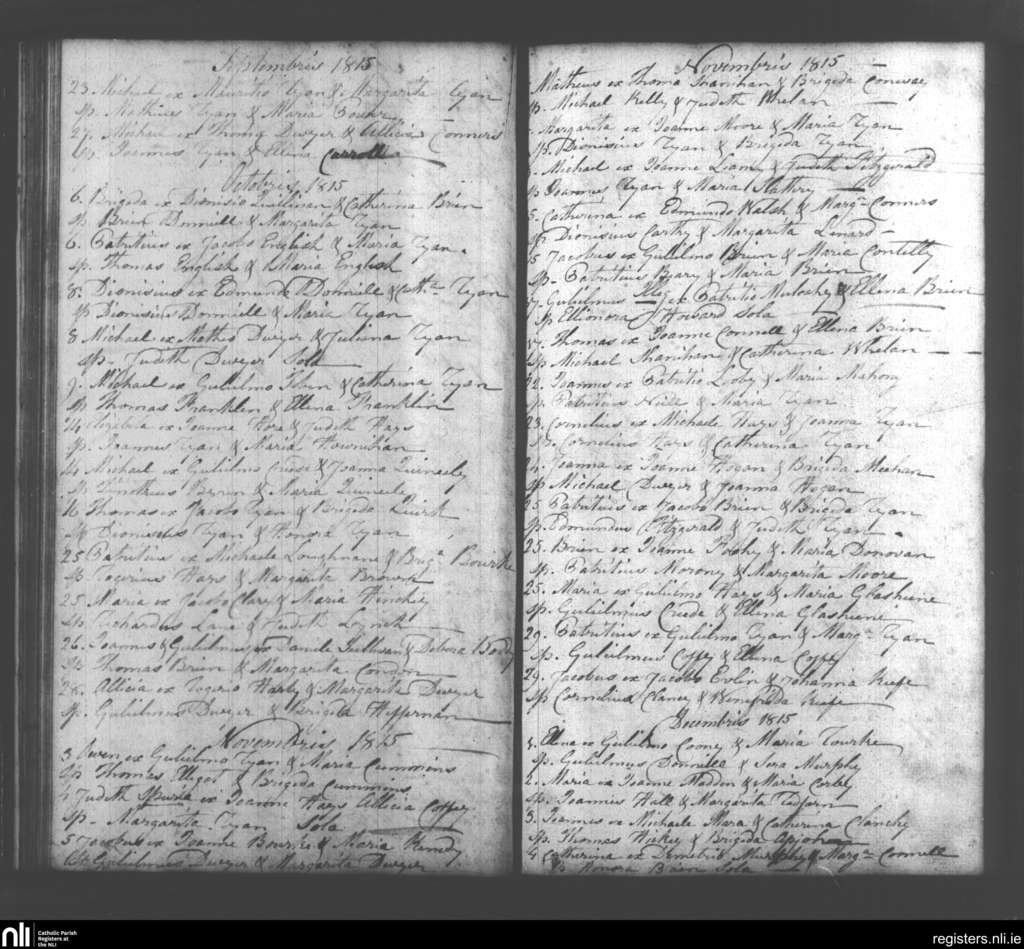 Septembris 1815
23. Michael ex Mauritio Ryan & Margarita Ryan
Sp. Mathias Ryan & Maria
27. Michael ex Thoma Dwyer & Allicia Conners
Sp. Joannes Ryan & Ellena Carroll
Octobris 1815
6. Brigida ex Dionisio Quillinan & Catherina Brien
Sp Brien Donniell & Margarita Ryan
6. Patritius ex Jacobo English & Maria Ryan
Sp. Thomas English & Maria English
8. Dionisius ex Edmundo Donniell & Cath.a Ryan
Sp Dionisius Donniell & Maria Ryan
8 Michael ex Matheo Dwyer & Juliana Ryan
Sp. Judith Dwyer Sola
9. Michael ex Gulielmo & Catherina Ryan
Sp Thomas Franklin & Ellena Franklin
14 ex Joanne Hore & Judith Hays
Sp. Joannes Ryan & Maria Hournihan
14 Michael ex Gulielmo & Joanna
Sp. Timotheus & Maria
16 Thomas ex Jacobo Ryan & Brigida Quirk
Sp Dionisius Ryan & Honora Ryan
25 Patritius ex Michaele Loughnane & Brig.a Bourke
Sp Rogerius Hays & Margarita Browne
25. Maria ex Jacobo Clary & Maria Hinchie
Sp Richardus Lane & Judith Loynch
26. Joannes & Gulielmus ex Daniele Sullivan & Debora
Sp Thomas Brien & Margarita Condon
28. Allicia ex Rogerio Harty & Margarita Dwyer
Sp. Gulielmus Dwyer & Brigida Heffernan
Novembris 1815
3 Owen ex Gulielmo Ryan & Maria Cummins
Sp Thomas Elligot & Brigida Cummins
4 Judith Spuria ex Joanne Hays Allicia Coffey
Sp. Margarita Ryan Sola
5 Jacobus ex Joanne Bourke & Maria
Sp Gulielmus Dwyer & Margarita Dwyer
Novembris 1815
Matheus ex Thoma Shanihan & Brigida Conway
Sp. Michael Kelly & Judith Whelan
Margarita ex Joanne Moore & Maria Ryan
Sp. Dionisius Ryan & Brigida Ryan
Michael ex Joanne Liamy & Judith Fitzgerald
Sp Joannes Ryan & Maria Slattery
5. Catherina ex Edmundo Walsh & Marg.a Conners
Sp Dionisius Carthy & Margarita Lenard
15 Jacobus ex Gulielmo Brien & Maria Contitty
Sp. Patritius Beary & Maria Brien
17. Gulielmus Illeg. ex Patritio Mulcahy & Ellena Brien
Sp Ellionora Howard Sola
17. Thomas ex Joanne Connell & Ellena Brien
Sp Michael Shanihan & Catherina Whelan
22. Joannes ex Patritio Looby & Maria Mahony
Sp. Patritius Niell & Maria Ryan
23. Cornelius ex Michaele Hays & Joanna Ryan
Sp. Cornelius Hays & Catherina Ryan
24. Joanna ex Joanne Hogan & Brigida Meehan
Sp Michael Dwyer & Joanna Hogan
25 Patritius ex Jacobo Brien & Brigida Ryan
Sp. Edmundus Fitzgerald & Judith Ryan
25. Brien ex Joanne & Maria Donovan
Sp. Patritius Morony & Margarita Moore
25. Maria ex Gulielmo Hays & Maria Glasheene
Sp. Gulielmus Creede & Ellena Glasheene
29. Patritius ex Gulielmo Ryan & Marg.a Ryan
Sp. Gulielmus Coffey & Ellena Coffey
29. Jacobus ex Jacobo & Johanna Keefe
Sp Cornelius Clance & Winefrida Keefe
Decembris 1815
1. Ellena ex Gulielmo Cooney & Maria Rourke
Sp. Gulielmus Donnell & Sera Murphy
2. Maria ex Joanne Maddin & Maria Corby
Sp. Joannes Hall & Margarita
3. Joannes ex Michaele Mara & Catherina Clanchy
Sp. Thomas Hickey & Brigida
4 Catherina ex Demetrio Murphy & Marg.a Connell
Sp Honora Brien Sola
nli
Catholic Parish
Registers at
the NLI
registers.nli.ie